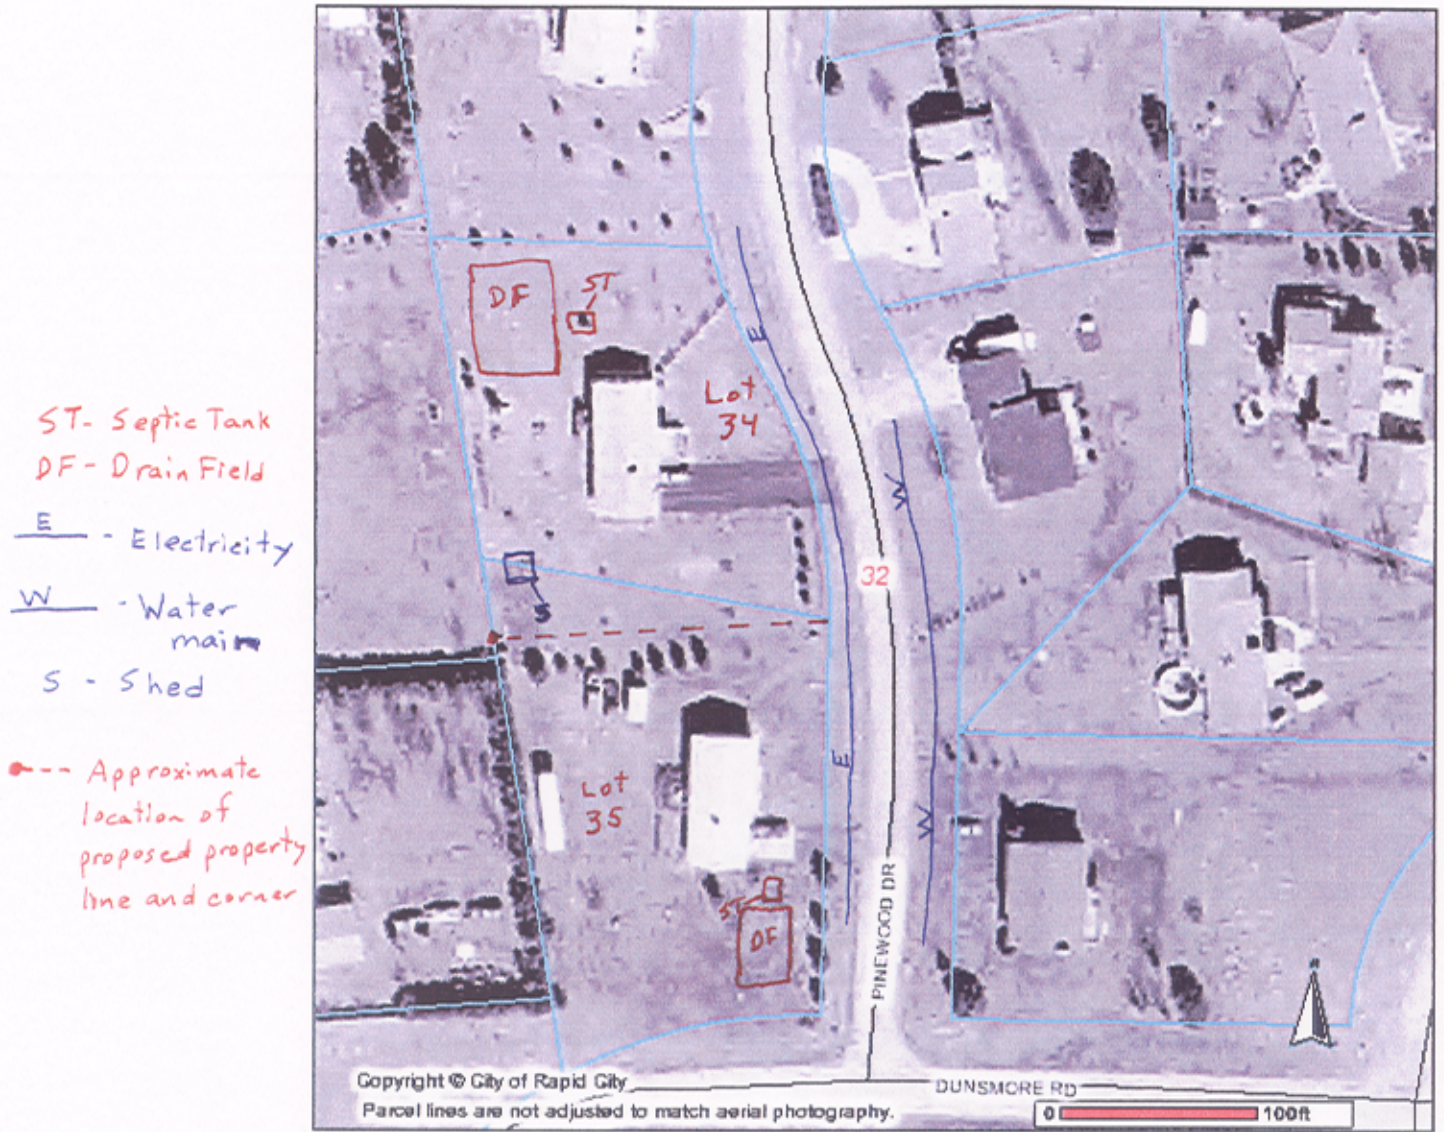 ST- Septic Tank
DF- Drain Field
E - Electricity
W - Water
main
S - Shed
--- Approximate
location of
proposed property
line and corner
DF
ST
E
Lot
34
W
32
S
E
Lot
35
W
ST
DF
PINEWOOD DR
Copyright © City of Rapid City
DUNSMORE RD
Parcel lines are not adjusted to match aerial photography.
0 100ft